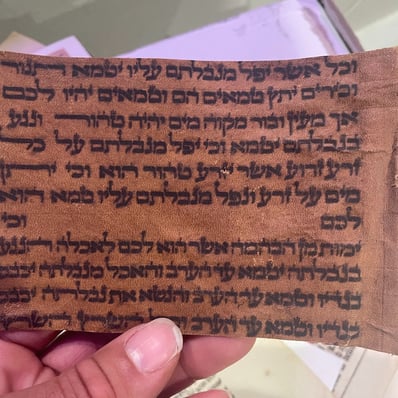 וכל אשר יפל מנבלתם עליו יטמא תנור
וכירים יתץ טמאים הם וטמאים יהיו לכם
אך מעין ובור מקוה מים יהיה טהור ונגע
בנבלתם יטמא וכי יפל מנבלתם על כל
זרע זרוע אשר יזרע טהור הוא וכי יתן
מים על זרע ונפל מנבלתם עליו טמא הוא
לכם וכי
ימות מן הבהמה אשר הוא לכם לאכלה הנגע
בנבלתה יטמא עד הערב והאכל מנבלתה יכבס
בגדיו וטמא עד הערב והנשא את נבלתה יכבס
בגדיו וטמא עד הערב וכל השרץ השרץ